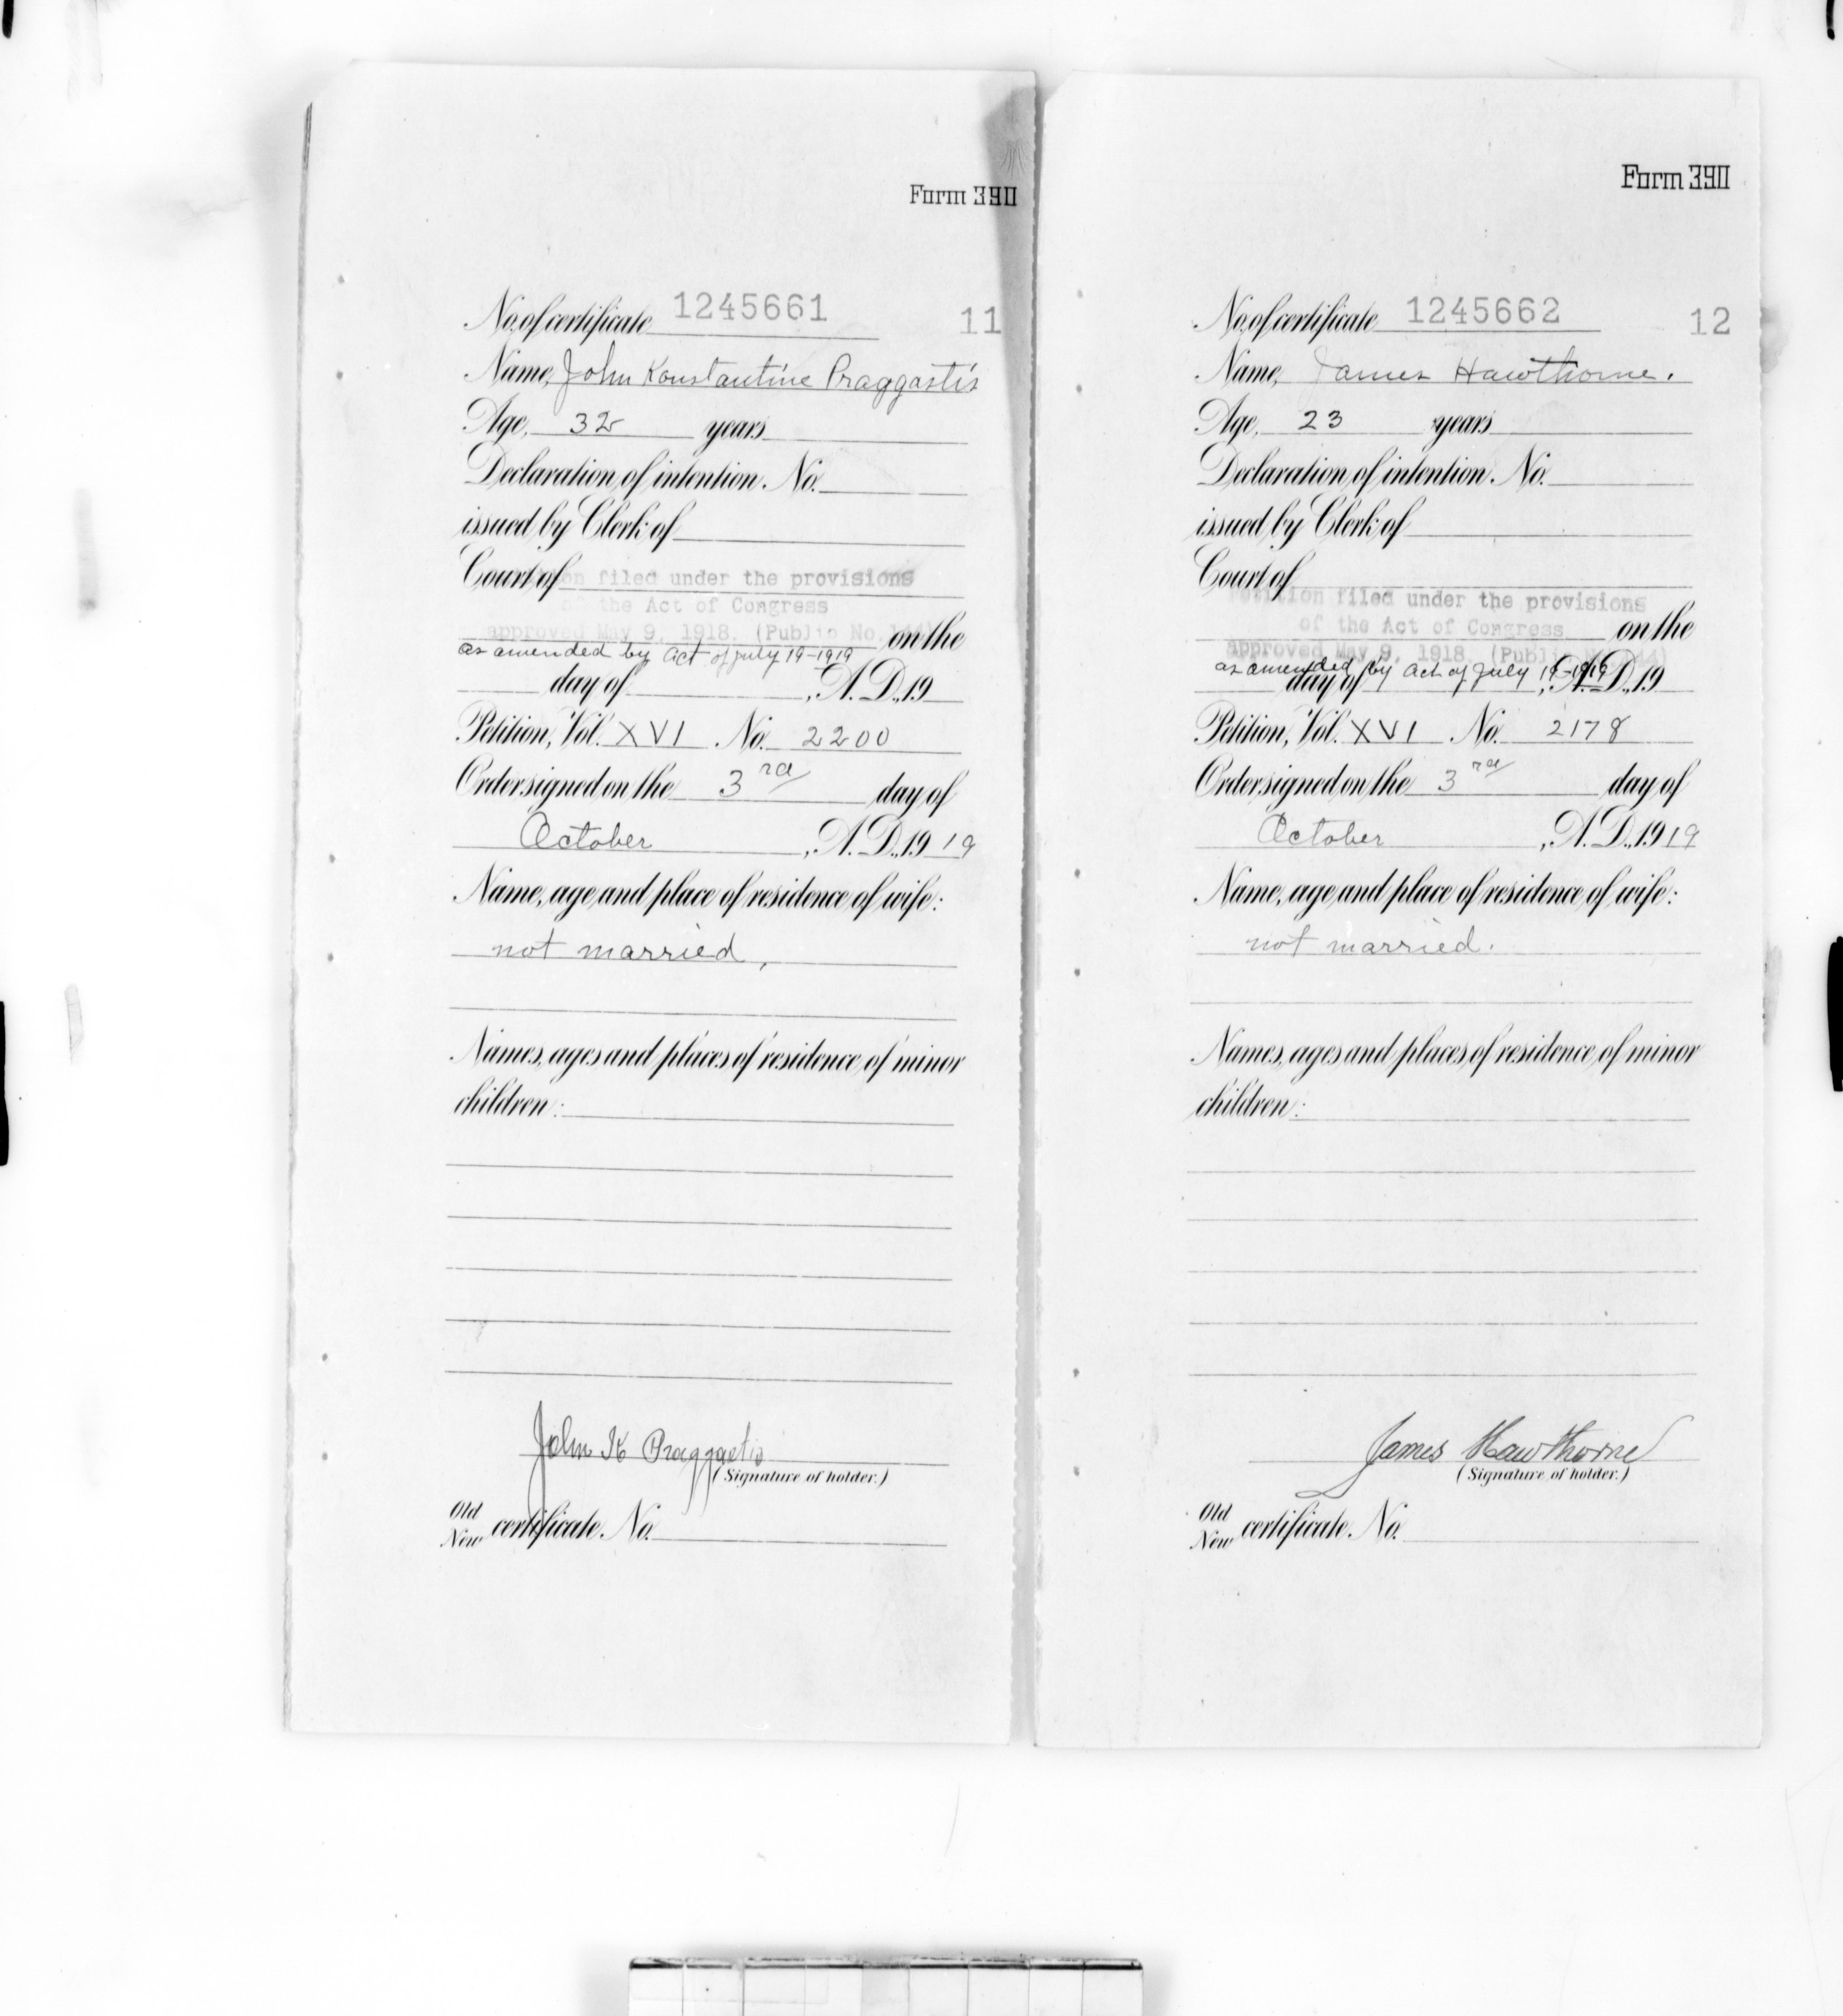 Form 390
No. of certificate 1245661 11
Name, John Konstantine Praggastis
Age, 32 years
Declaration of intention. No.
issued by Clerk of
Court of on filed under the provisions
of the Act of Congress
approved May 9, 1918. (Public No. 144) on the
as amended by act of July 19-1919
day of , A.D., 19
Petition, Vol. XVI . No. 2200
Order signed on the 3rd day of
October , A.D., 19 19
Name, age and place of residence of wife:
not married,
Names, ages and places of residence of minor
children:
John K Praggastis
(Signature of holder.)
Old
New certificate. No.
Form 390
No. of certificate 1245662 12
Name, James Hawthorne.
Age, 23 years
Declaration of intention. No.
issued by Clerk of
Court of
Petition filed under the provisions
of the Act of Congress on the
approved May 9, 1918. (Public No. 144)
as amended by act of July 19-1919
day of , A.D., 19
Petition, Vol. XVI No. 2178
Order signed on the 3rd day of
October , A.D., 19 19
Name, age and place of residence of wife:
not married.
Names, ages and places of residence of minor
children:
James Hawthorne
(Signature of holder.)
Old
New certificate. No.